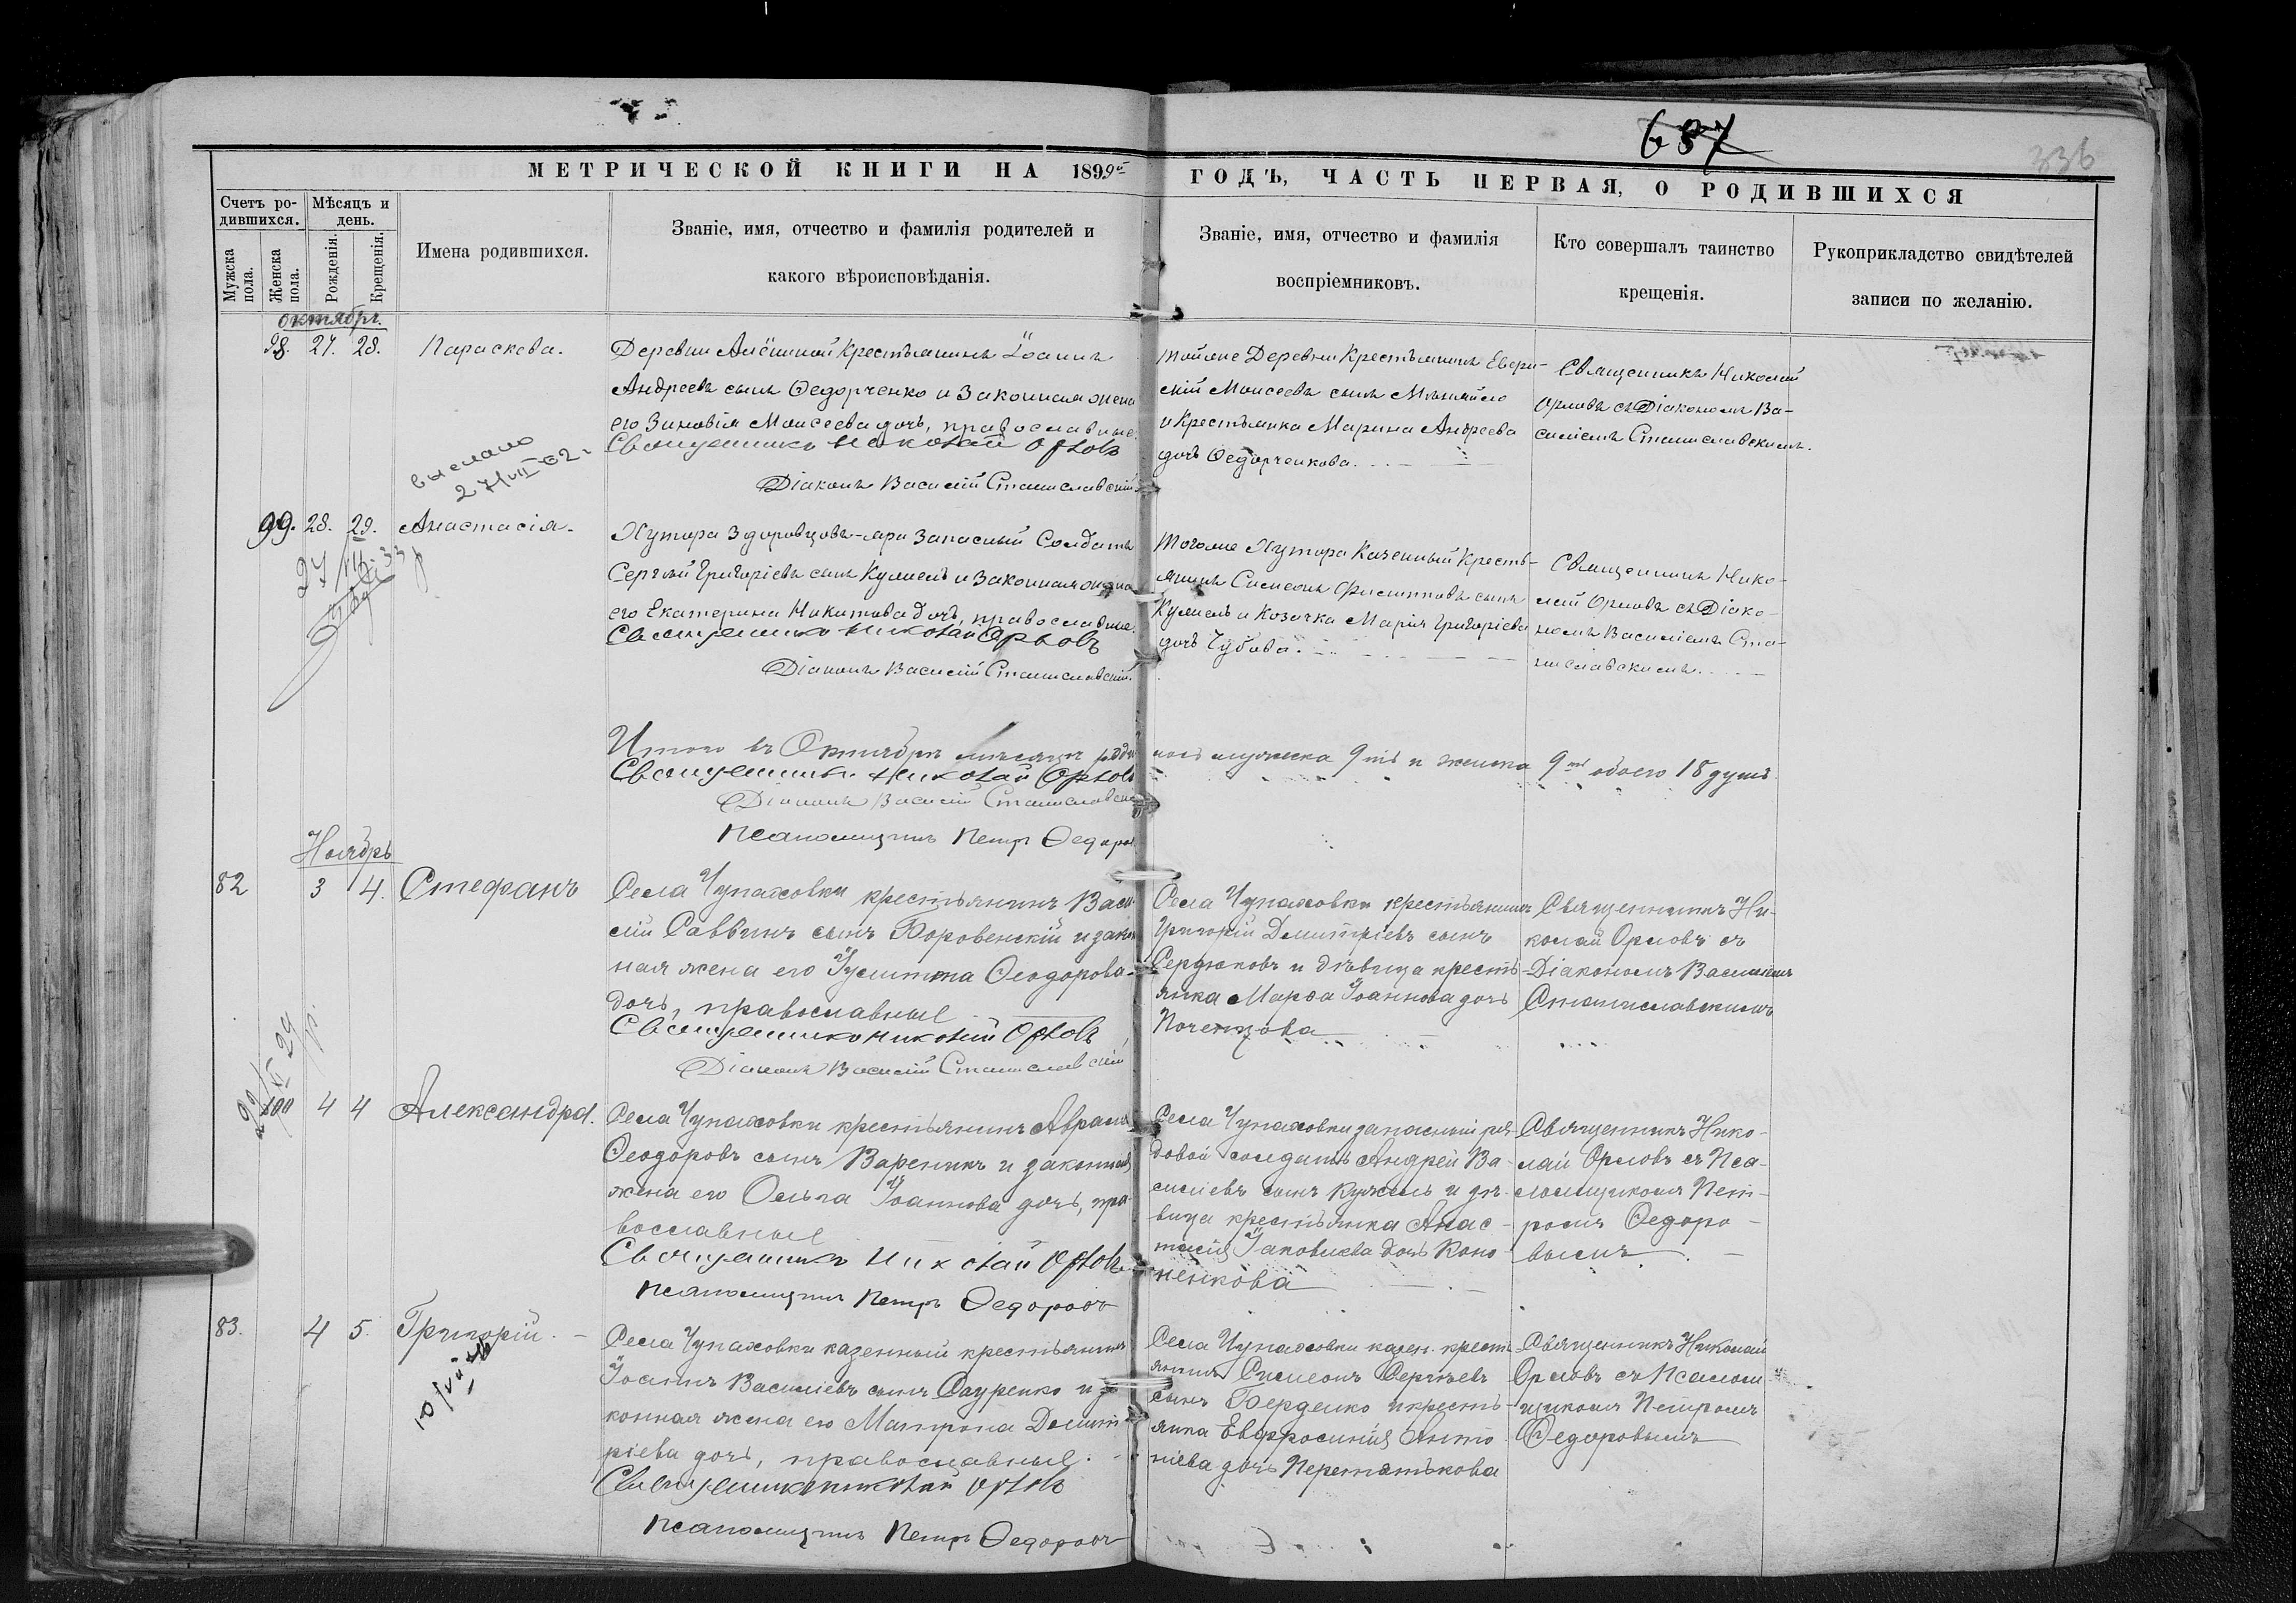 687
336
МЕТРИЧЕСКОЙ КНИГИ НА 1899й ГОДЪ, ЧАСТЬ ПЕРВАЯ, О РОДИВШИХСЯ
Счетъ ро-
дившихся.
Мужска пола.
Женска пола.
Мѣсяцъ и
день.
Рожденія.
Крещенія.
Имена родившихся.
Званіе, имя, отчество и фамилія родителей и
какого вѣроисповѣданія.
Званіе, имя, отчество и фамилія
воспріемниковъ.
Кто совершалъ таинство
крещенія.
Рукоприкладство свидѣтелей
записи по желанію.
Октябрь.
98. 27. 28. Параскева.
Деревни Алёшиной Крестьянинъ Іоаннъ
Андреевъ сынъ Ѳедорченко и Законная жена
его Зиновія Моисеева дочь, православные.
Священникъ Николай Орловъ
Діаконъ Василій Станиславскій
тойже Деревни Крестьянинъ
Моисеевъ сынъ
и Крестьянка Марина Андреева
дочь Ѳедорченкова.
Священникъ Николай
Орловъ съ Діакономъ Ва-
силіемъ Станиславскимъ.
выслано
27/VII 02 г
99. 28. 29. Анастасія.
Хутора Запасный Солдатъ
Сергѣй Григоріевъ сынъ Кужель и Законная жена
его Екатерина Никитова дочь, православные.
Священникъ Николай Орловъ
Діаконъ Василій Станиславскій.
Тогоже Хутора Казенный Кресть-
янинъ Симеонъ Филипповъ сынъ
Кужель и Козачка Марія Григоріева
дочь Чубова.
Священникъ Нико-
лай Орловъ съ Діако-
номъ Василіемъ Ста-
ниславскимъ.
Итого въ Октябрѣ мѣсяцѣ роди лось мужеска 9ть и женска 9ть обоего 18 душъ
Священникъ Николай Орловъ
Діаконъ Василій Станиславскій
Псаломщикъ Петръ Ѳедоровъ
Ноябрь
82 3 4. Стефанъ
Села Чупаховки крестьянинъ Васи-
лій Саввинъ сынъ Боровенскій и закон
ная жена его Іулитта Ѳеодорова
дочь, православные
Священникъ Николай Орловъ
Діаконъ Василій Станиславскій
Села Чупаховки крестьянинъ
Григорій Димитріевъ сынъ
Сердюковъ и дѣвица кресть-
янка Марѳа Іоаннова дочь
Священникъ Ни-
колай Орловъ съ
Діакономъ Василіемъ
Станиславскимъ
100 4 4 Александра.
Села Чупаховки крестьянинъ Авраамъ
Ѳеодоровъ сынъ Вареникъ и законная
жена его Ольга Іоаннова дочь, пра-
вославные
Священникъ Николай Орловъ
Псаломщикъ Петръ Ѳедоровъ
Села Чупаховки запасный ря-
довой солдатъ Андрей Ва-
силіевъ сынъ Кужель и дѣ-
вица крестьянка Анас-
тасія Іаковлева дочь Коно-
ненкова
Священникъ Нико-
лай Орловъ съ Пса-
ломщикомъ Пет-
ромъ Ѳедоро-
вымъ
83. 4 5. Григорій.
Села Чупаховки казенный крестьянинъ
Іоаннъ Василіевъ сынъ Сауренко и за
конная жена его Матрона Димит
ріева дочь, православные.
Священникъ Николай Орловъ
Псаломщикъ Петръ Ѳедоровъ
Села Чупаховки казен. кресть
янинъ Симеонъ Сергѣевъ
сынъ Берденко и кресть-
янка Евфросинія Анто
ніева дочь Перетятькова
Священникъ Николай
Орловъ съ Псалом
щикомъ Петромъ
Ѳедоровымъ